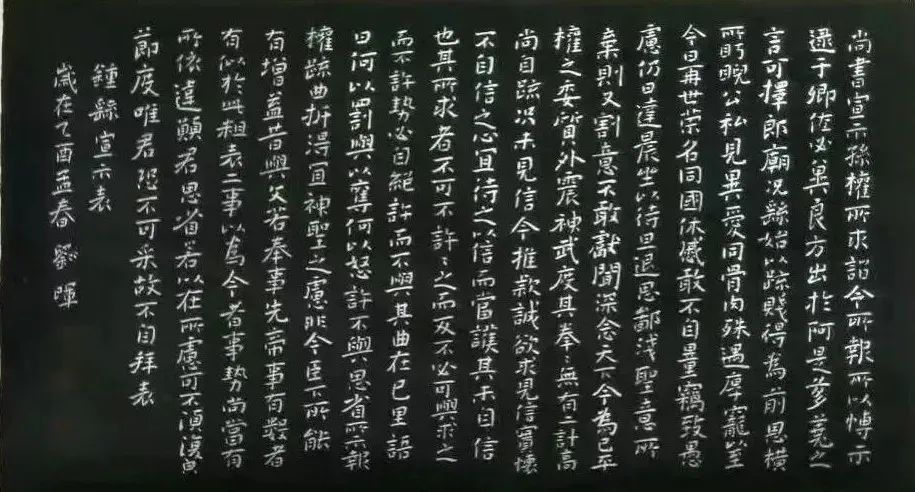 尚書宣示孫權所求詔令所報所以博示
逮于卿佐必冀良方出於阿是芻蕘之
言可擇郎廟況繇始以疏賤得為前思橫
所盻睨公私見異愛同骨肉殊遇厚寵以至
今日再世榮名同國休慼敢不自量竊致愚
慮仍日達晨坐以待旦退思鄙淺聖意所
棄則又割意不敢獻聞深念天下今為已平
權之委質外震神武度其拳〻無有二計高
尚自疏況未見信今推款誠欲求見信實懷
不自信之心亦宜待之以信而當護其未自信
也其所求者不可不許〻之而反不必可與求之
而不許勢必自絕許而不與其曲在己里語
曰何以罰與以奪何以怒許不與思省所示報
權疏曲折得宜神聖之慮非今臣下所能
有增益昔與文若奉事先帝事有數者
有似於此粗表二事以為今者事勢尚當有
所依違願君思省若以在所慮可不須復與
節度唯君恐不可采故不自拜表
鍾繇宣示表
歲在乙酉孟春 暉